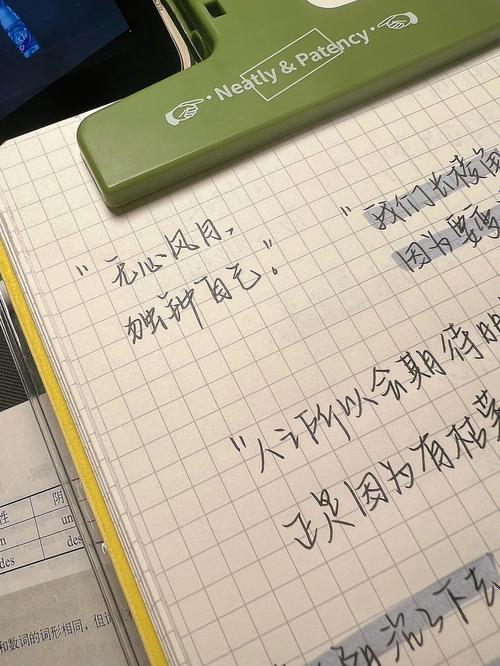 Neatly & Patency
"无心风月，
独钟自己。"
"我们
因为要
"人之所以会期待明
正是因为有
沉下去
性 阴
n un
des des
和数词的词形相同，但